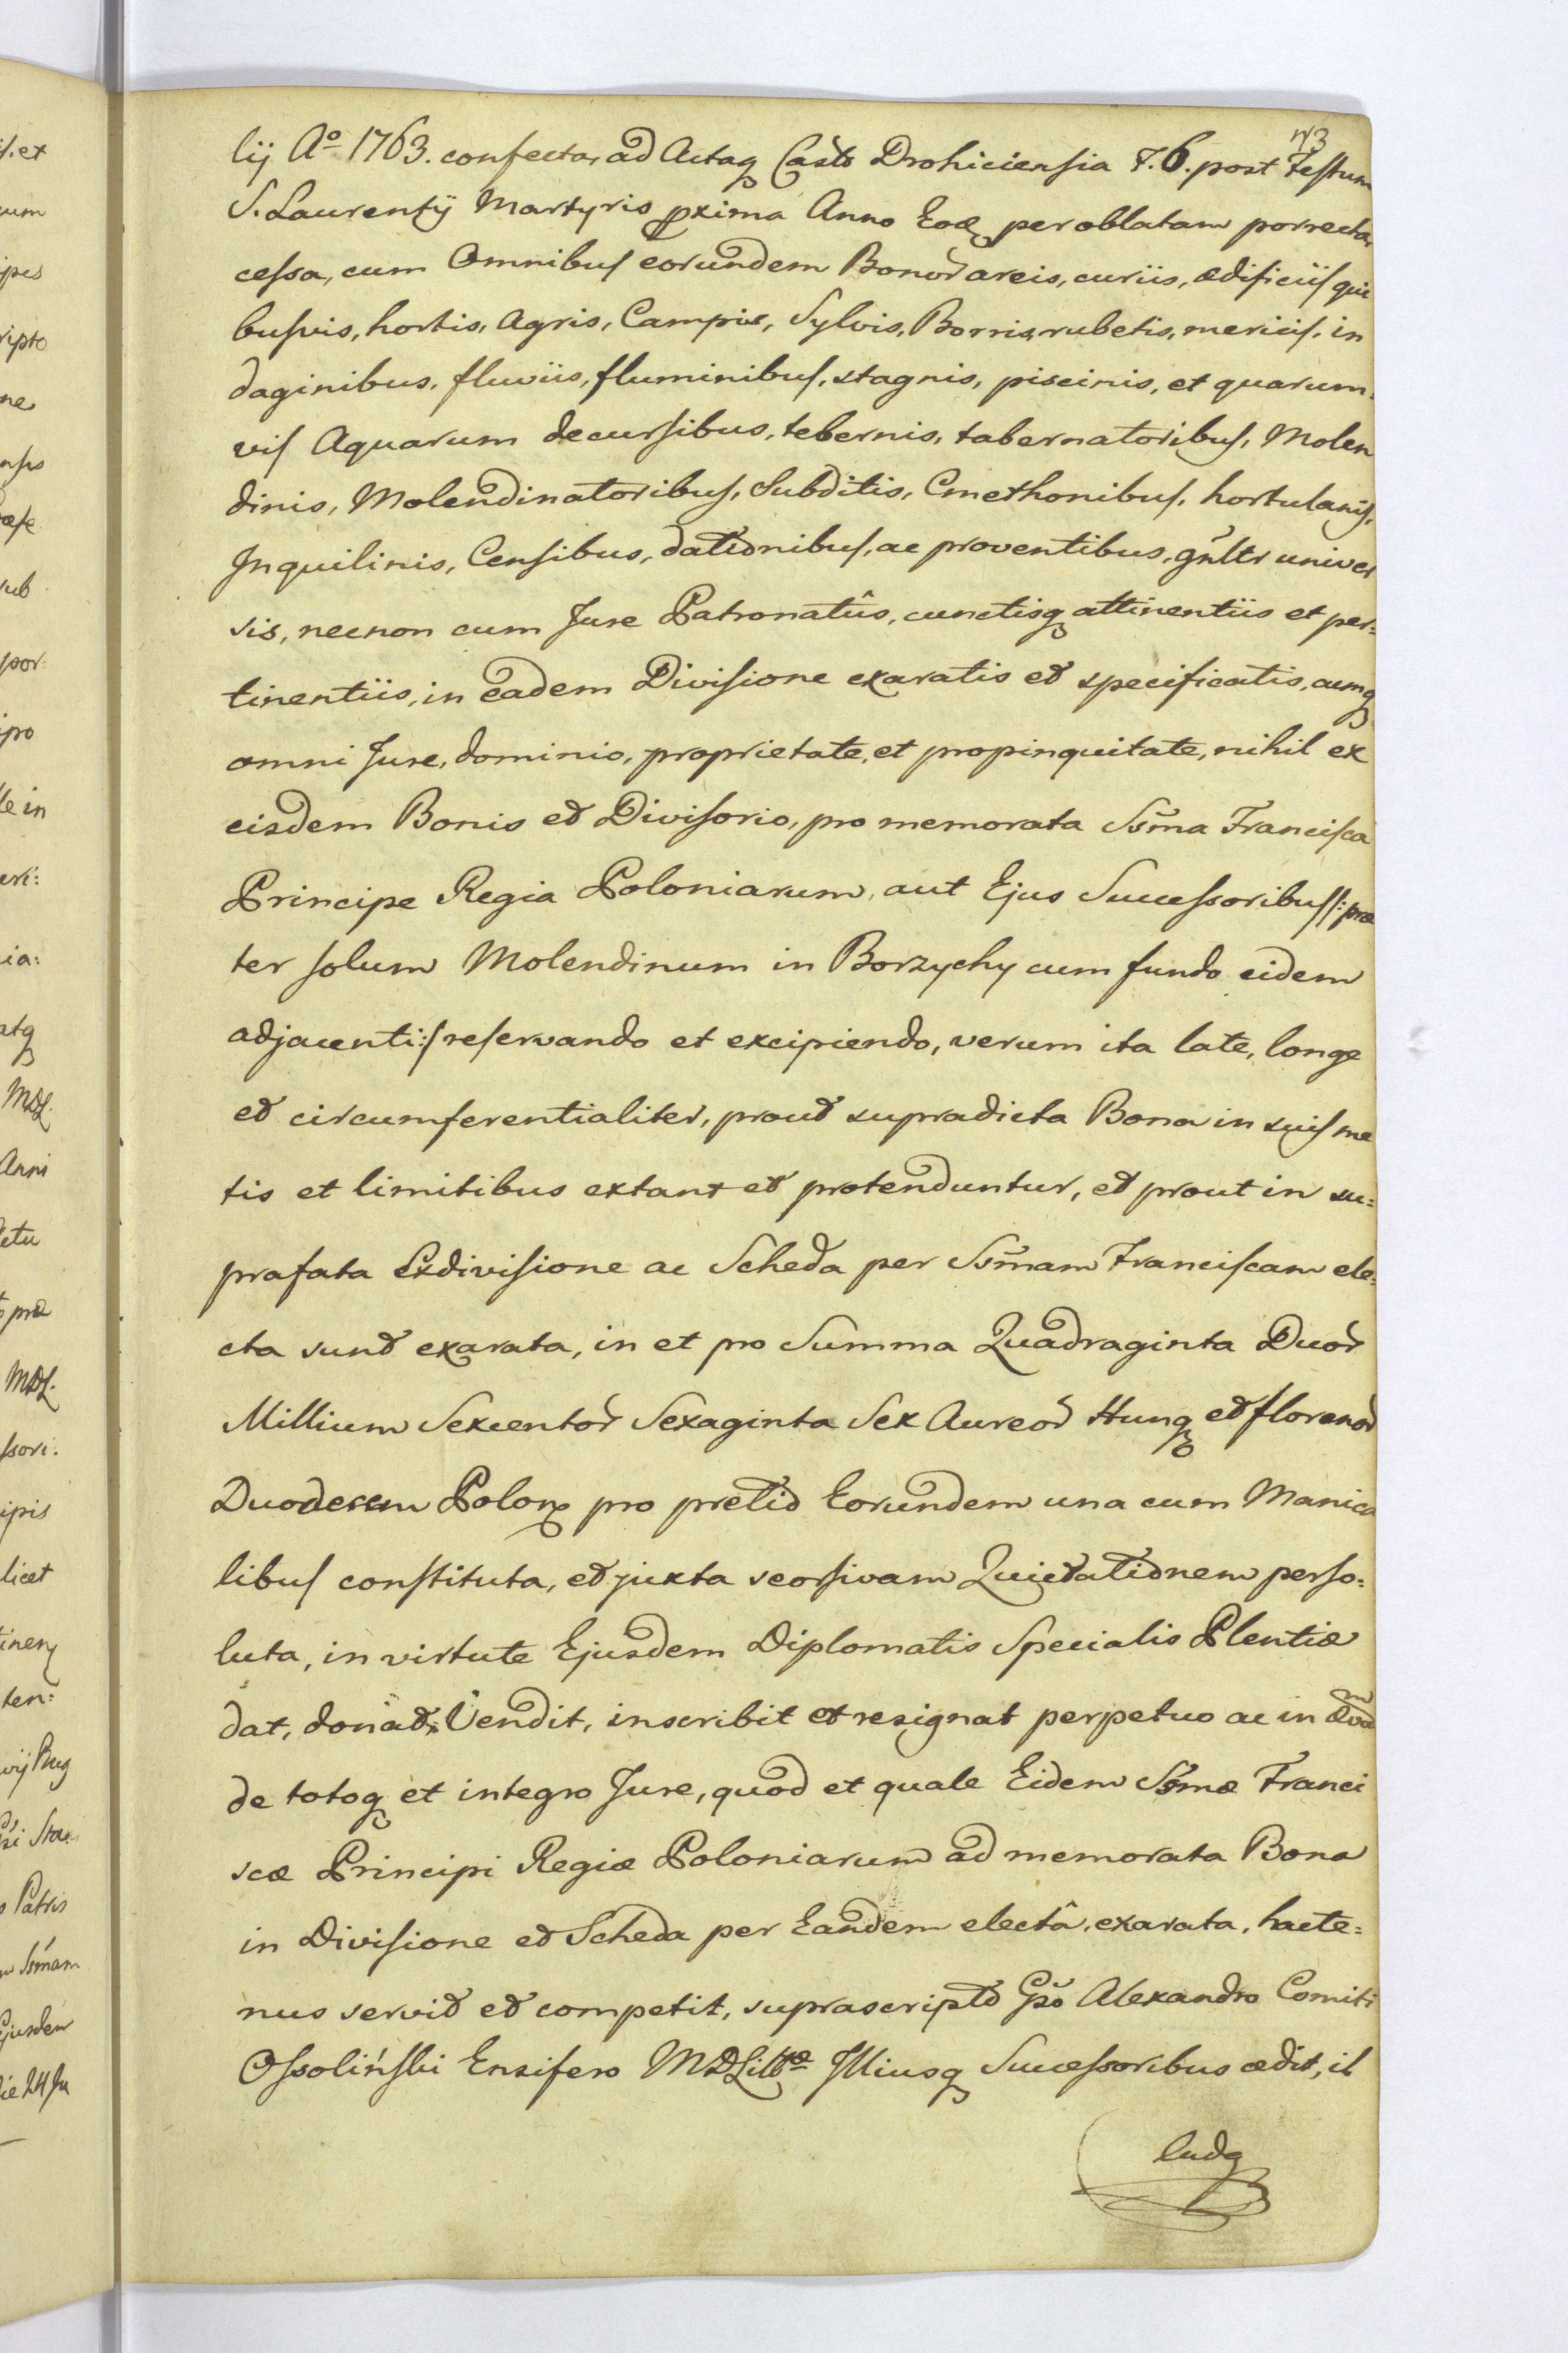 73
lij Aº 1763. confecta, ad Actaq Casts Drohiciensia F. 6. post Festum
S. Laurentij Martyris pxima Anno Eoq per oblatam porrecta,
cessa, cum Omnibus eorundem Bonor areis, curiis, ædificiis qui
busvis, hortis, Agris, Campis, Sylvis, Borris, rubetis, mericis, in
daginibus, fluviis, fluminibus, stagnis, piscinis, et quarum:
vis Aquarum decursibus, tebernis, tabernatoribus, Molen
dinis, Molendinatoribus, Subditis, Cmethonibus, hortulanis,
Inquilinis, Censibus, dationibus, ac proventibus, gnltr univer
sis, necnon cum Jure Patronatûs, cunctisq attinentiis et per:
tinentiis, in eadem Divisione exaratis et specificatis, cumq
omni Jure, dominio, proprietate, et propinquitate, nihil ex
eisdem Bonis et Divisorio, pro memorata Ssma Francisca
Principe Regia Poloniarum, aut Ejus Successoribus /: præ
ter solum Molendinum in Borzychy cum fundo eidem
adjacenti :/ reservando et excipiendo, verum ita late, longe
et circumferentialiter, prout supradicta Bona in suis me
tis et limitibus extant et protenduntur, et prout in su:
prafata Exdivisione ac Scheda per Ssmam Franciscam ele:
cta sunt exarata, in et pro Summa Quadraginta Duor
Millium Sexcentor Sexaginta Sex Aureor Hunq et florenor
Duodecem Polon pro pretio Eorundem una cum Manica
libus constituta, et juxta seorsivam Quietationem perso:
luta, in virtute Ejusdem Diplomatis Specialis Plentiæ
dat, donat, Vendit, inscribit et resignat perpetuo ac in ævum
de totoq et integro Jure, quod et quale Eidem Ssmæ Franci
scæ Principi Regiæ Poloniarum ad memorata Bona
in Divisione et Scheda per Eandem electâ, exarata, hacte:
nus servit et competit, suprascripto Gso Alexandro Comiti
Ossoliński Ensifero MDLittæ Illiusq Successoribus cedit, il
ludq